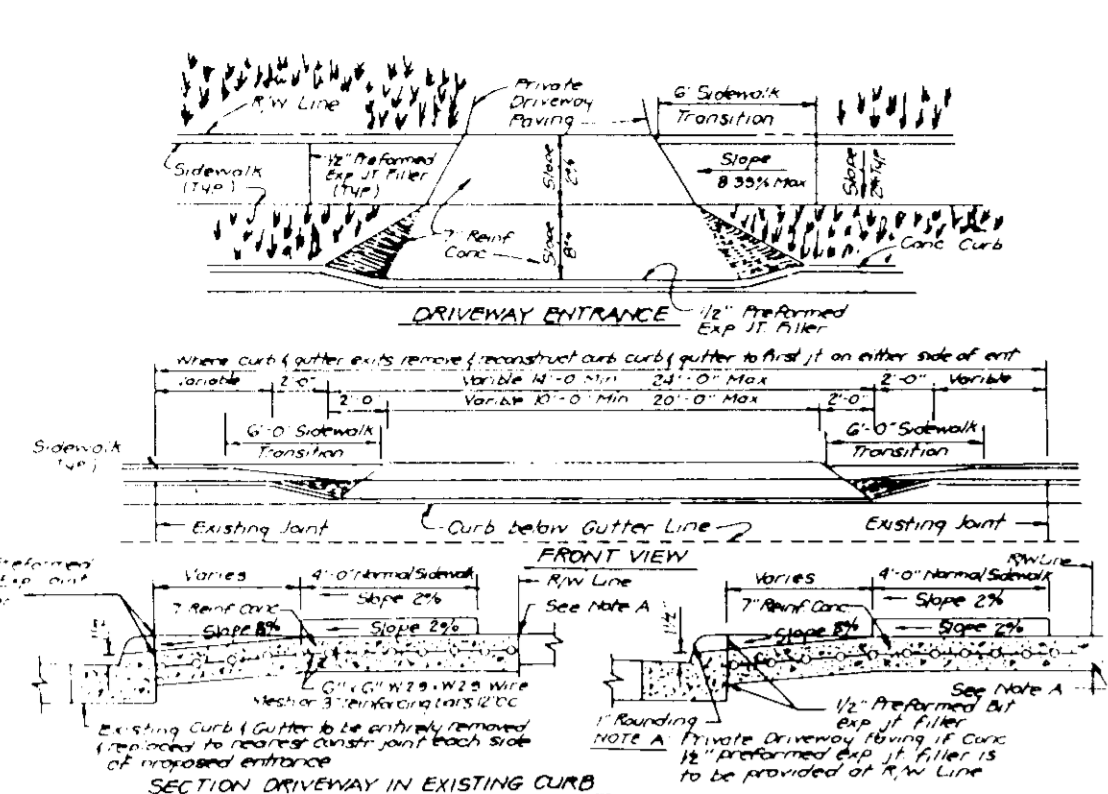 R/W Line
Private
Driveway
Paving
6' Sidewalk
Transition
Sidewalk
(Typ)
1/2" Preformed
Exp JT Filler
(Typ)
Slope
2%
Slope
8.33% Max
Slope
2% Typ
7" Reinf
Conc
Slope
8%
Conc Curb
DRIVEWAY ENTRANCE
1/2" Preformed
Exp JT. Filler
Where curb & gutter exits remove & reconstruct curb curb & gutter to first jt on either side of ent
Variable 2'-0" Varible 14'-0 Min 24'-0" Max 2'-0" Varible
2'-0 Varible 10'-0" Min 20'-0" Max 2'-0"
6'-0" Sidewalk
Transition
6'-0" Sidewalk
Transition
Sidewalk
Typ)
Existing Joint
Curb below Gutter Line
Existing Joint
FRONT VIEW
Preformed
Exp oint
Varies
4'-0" Normal Sidewalk
R/W Line
Slope 2%
See Note A
7" Reinf Conc
Slope 8%
Slope 2%
1 1/2"
6" x 6" W2.9 x W2.9 Wire
Mesh or 3" reinforcing bars 12"cc
Existing Curb & Gutter to be entirely removed
& replaced to nearest constr joint each side
of proposed entrance
SECTION DRIVEWAY IN EXISTING CURB
R/W Line
Varies
4'-0" Normal Sidewalk
7" Reinf Conc
Slope 2%
Slope 8%
Slope 2%
1 1/2"
See Note A
1/2" Preformed Bit
exp jt filler
1" Rounding
NOTE A: Private Driveway Paving if Conc
1/2" preformed exp jt. filler is
to be provided at R/W Line